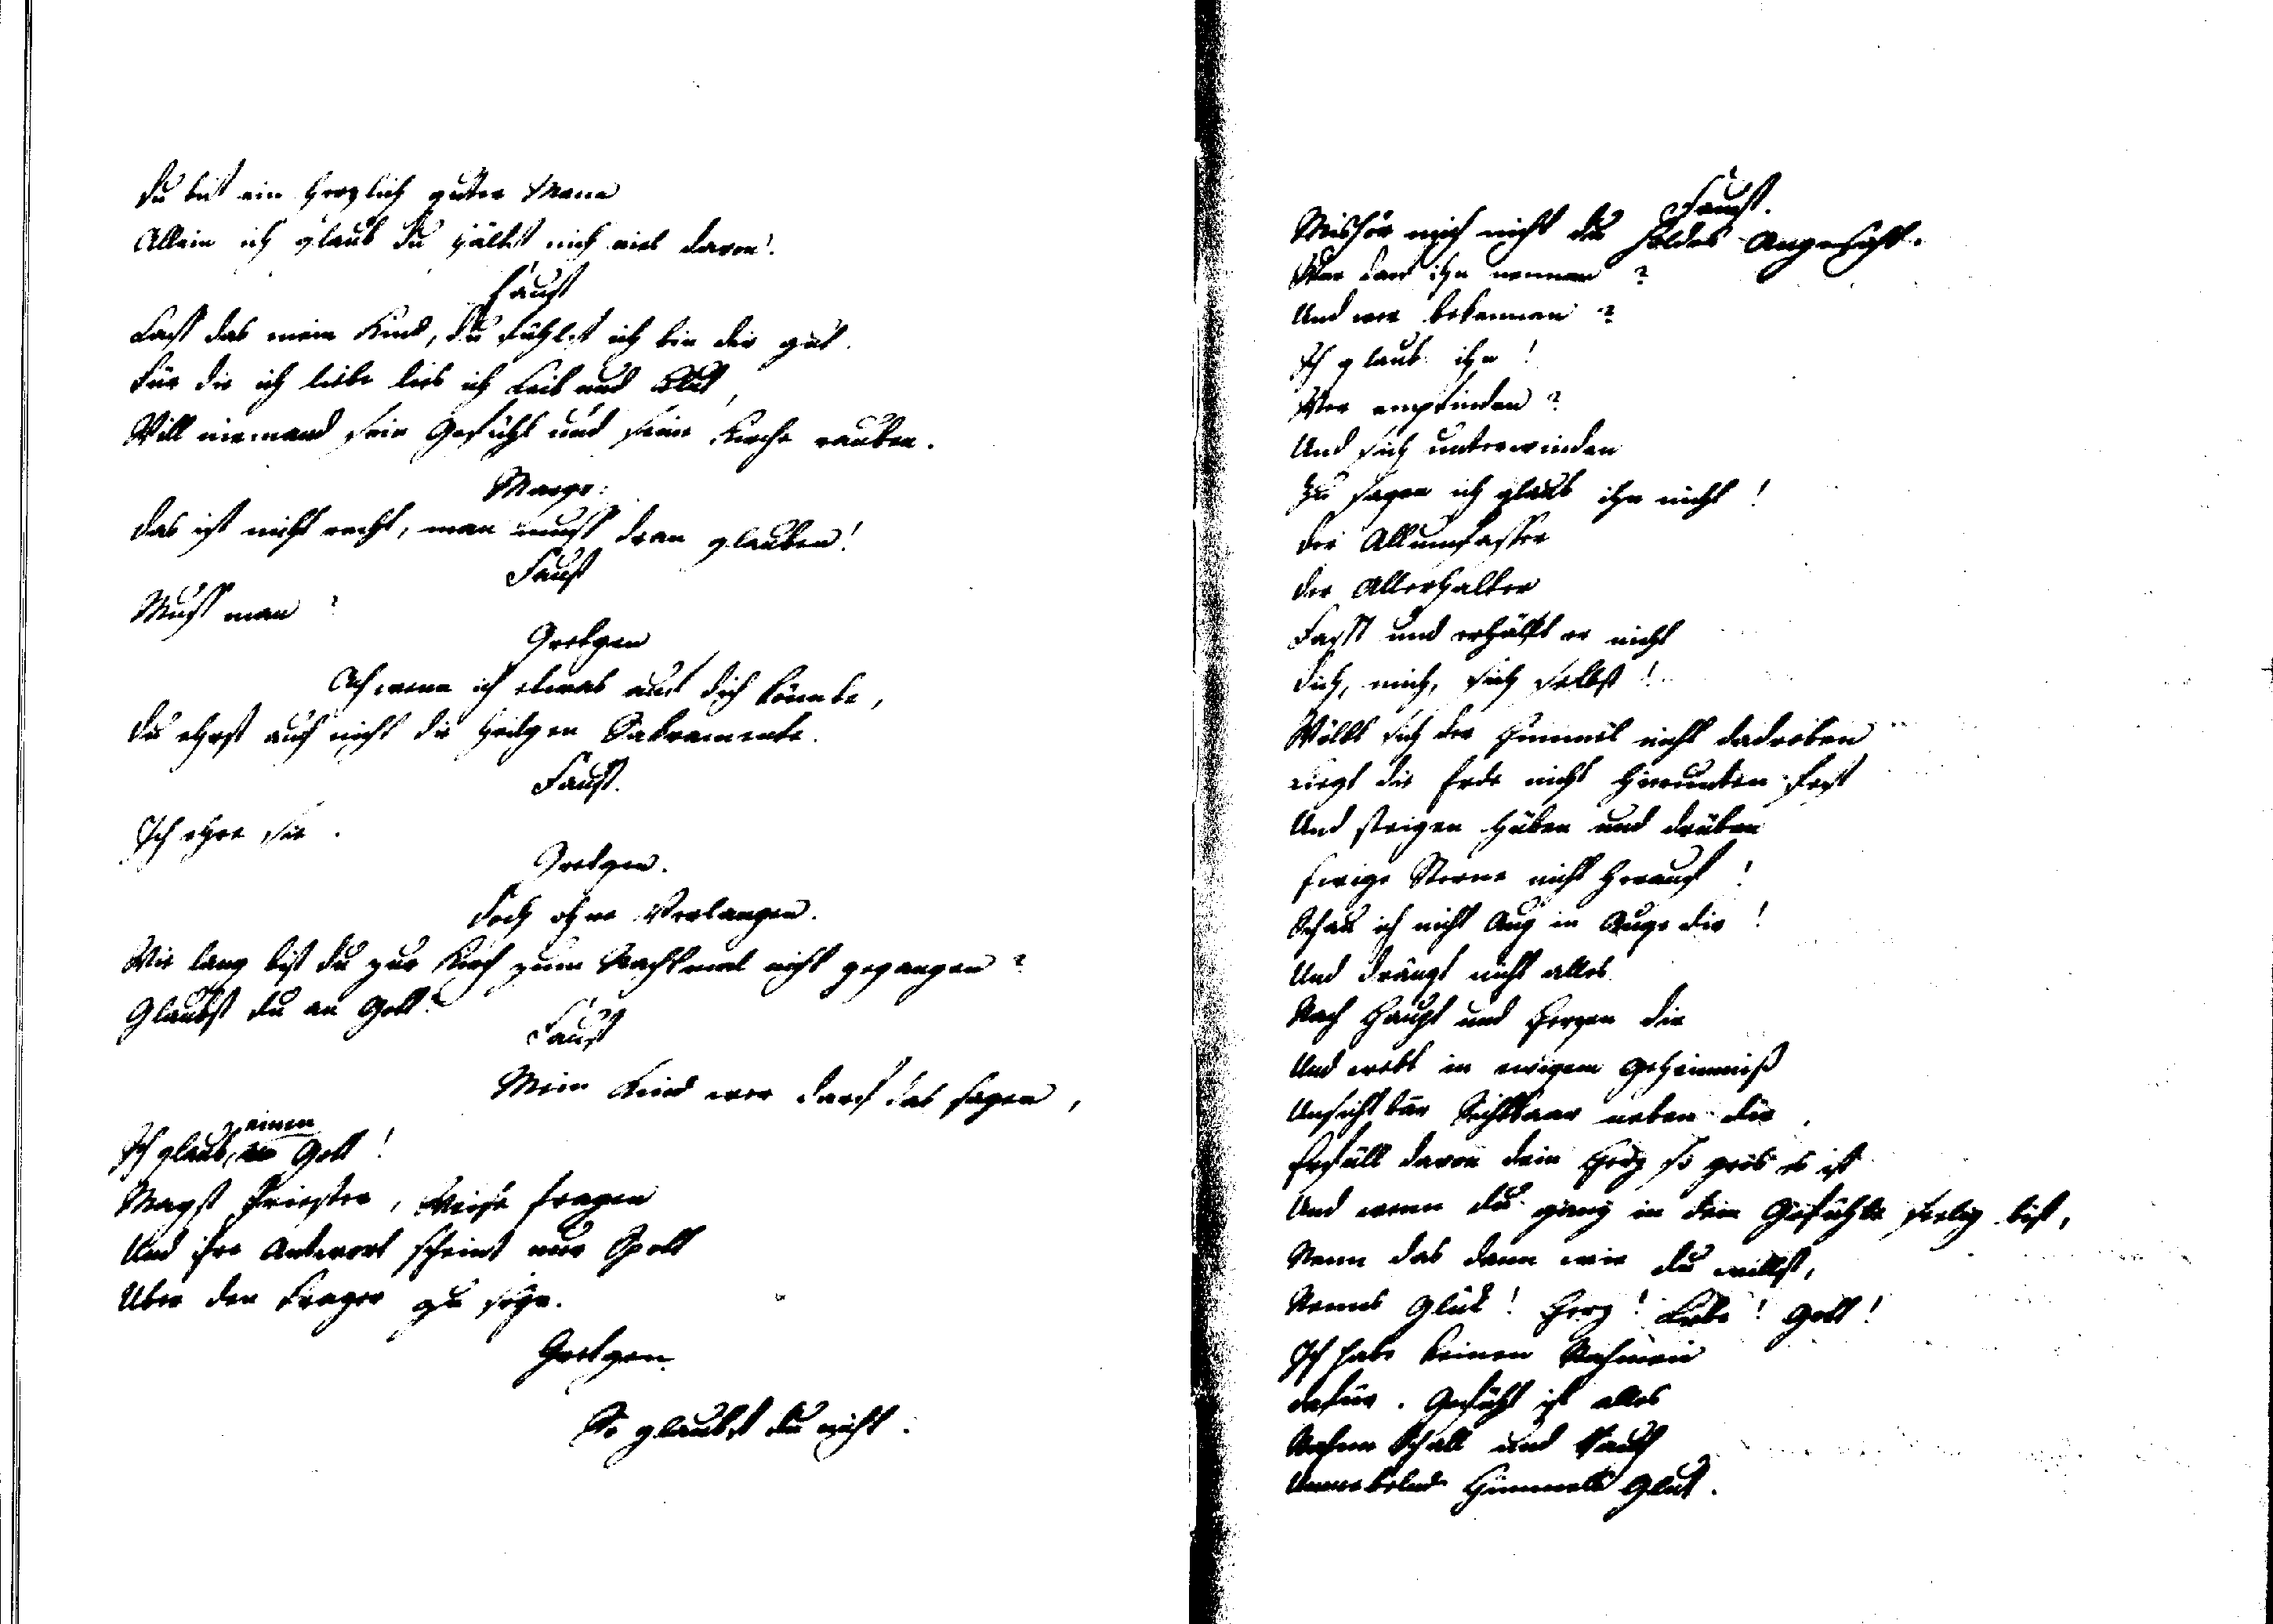 Du bist ein herzlich guter Mann
Allein ich glaub du hältst nich viel davon.
Faust
Lass das mein Kind, du fühlst ich bin dir gut.
Für die ich liebe lies ich Leib und Blut,
Will niemand sein Gefühl und seine Kirche rauben.
Margr:
Das ist nicht recht, man muss dran glauben!
Faust
Muss man?
Gretgen
Ach wenn ich etwas auf dich könnte,
Du ehrst auch nicht die heilgen Sakramente.
Faust.
Ich ehre sie.
Gretgen.
Doch ohne Verlangen.
Wie lang bist du zur Kirch zum Nachtmal nicht gegangen?
Glaubst du an Gott?
Faust
Mein Kind wer darf das sagen,
Ich glaub einen Gott!
Magst Priester, Weise fragen
Und ihre Antwort scheint nur Spott
Über den Frager zu seyn.
Gretgen
So glaubst du nicht.
Faust.
Mishör mich nicht du holdes Angesicht.
Wer darf ihn nennen?
Und wer bekennen?
Ich glaub ihn!
Wer empfinden?
Und sich unterwinden
Zu sagen ich glaub ihn nicht!
Der Allumfasser
Der Allerhalter
Fasst und erhält er nicht
Dich, mich, sich selbst!
Wölbt sich der Himmel nicht dadroben
Liegt die Erde nicht hierunten fest
Und steigen hüben und drüben
Ewige Sterne nicht herauf!
Schau ich nicht Aug in Auge dir!
Und drängt nicht alles
Nach Haupt und Herzen dir
Und webt in ewigem Geheimniß
Unsichtbaar Sichtbaar neben dir,
Erfüll davon dein Herz so gros es ist
Und wenn du ganz in dem Gefühle seelig bist,
Nenn das dann wie du willst,
Nenns Glük! Herz! Liebe! Gott!
Ich habe keinen Nahmen
Dafür. Gefühl ist alles
Nahme Schall und Rauch
Umnebelnd Himmels Glut.